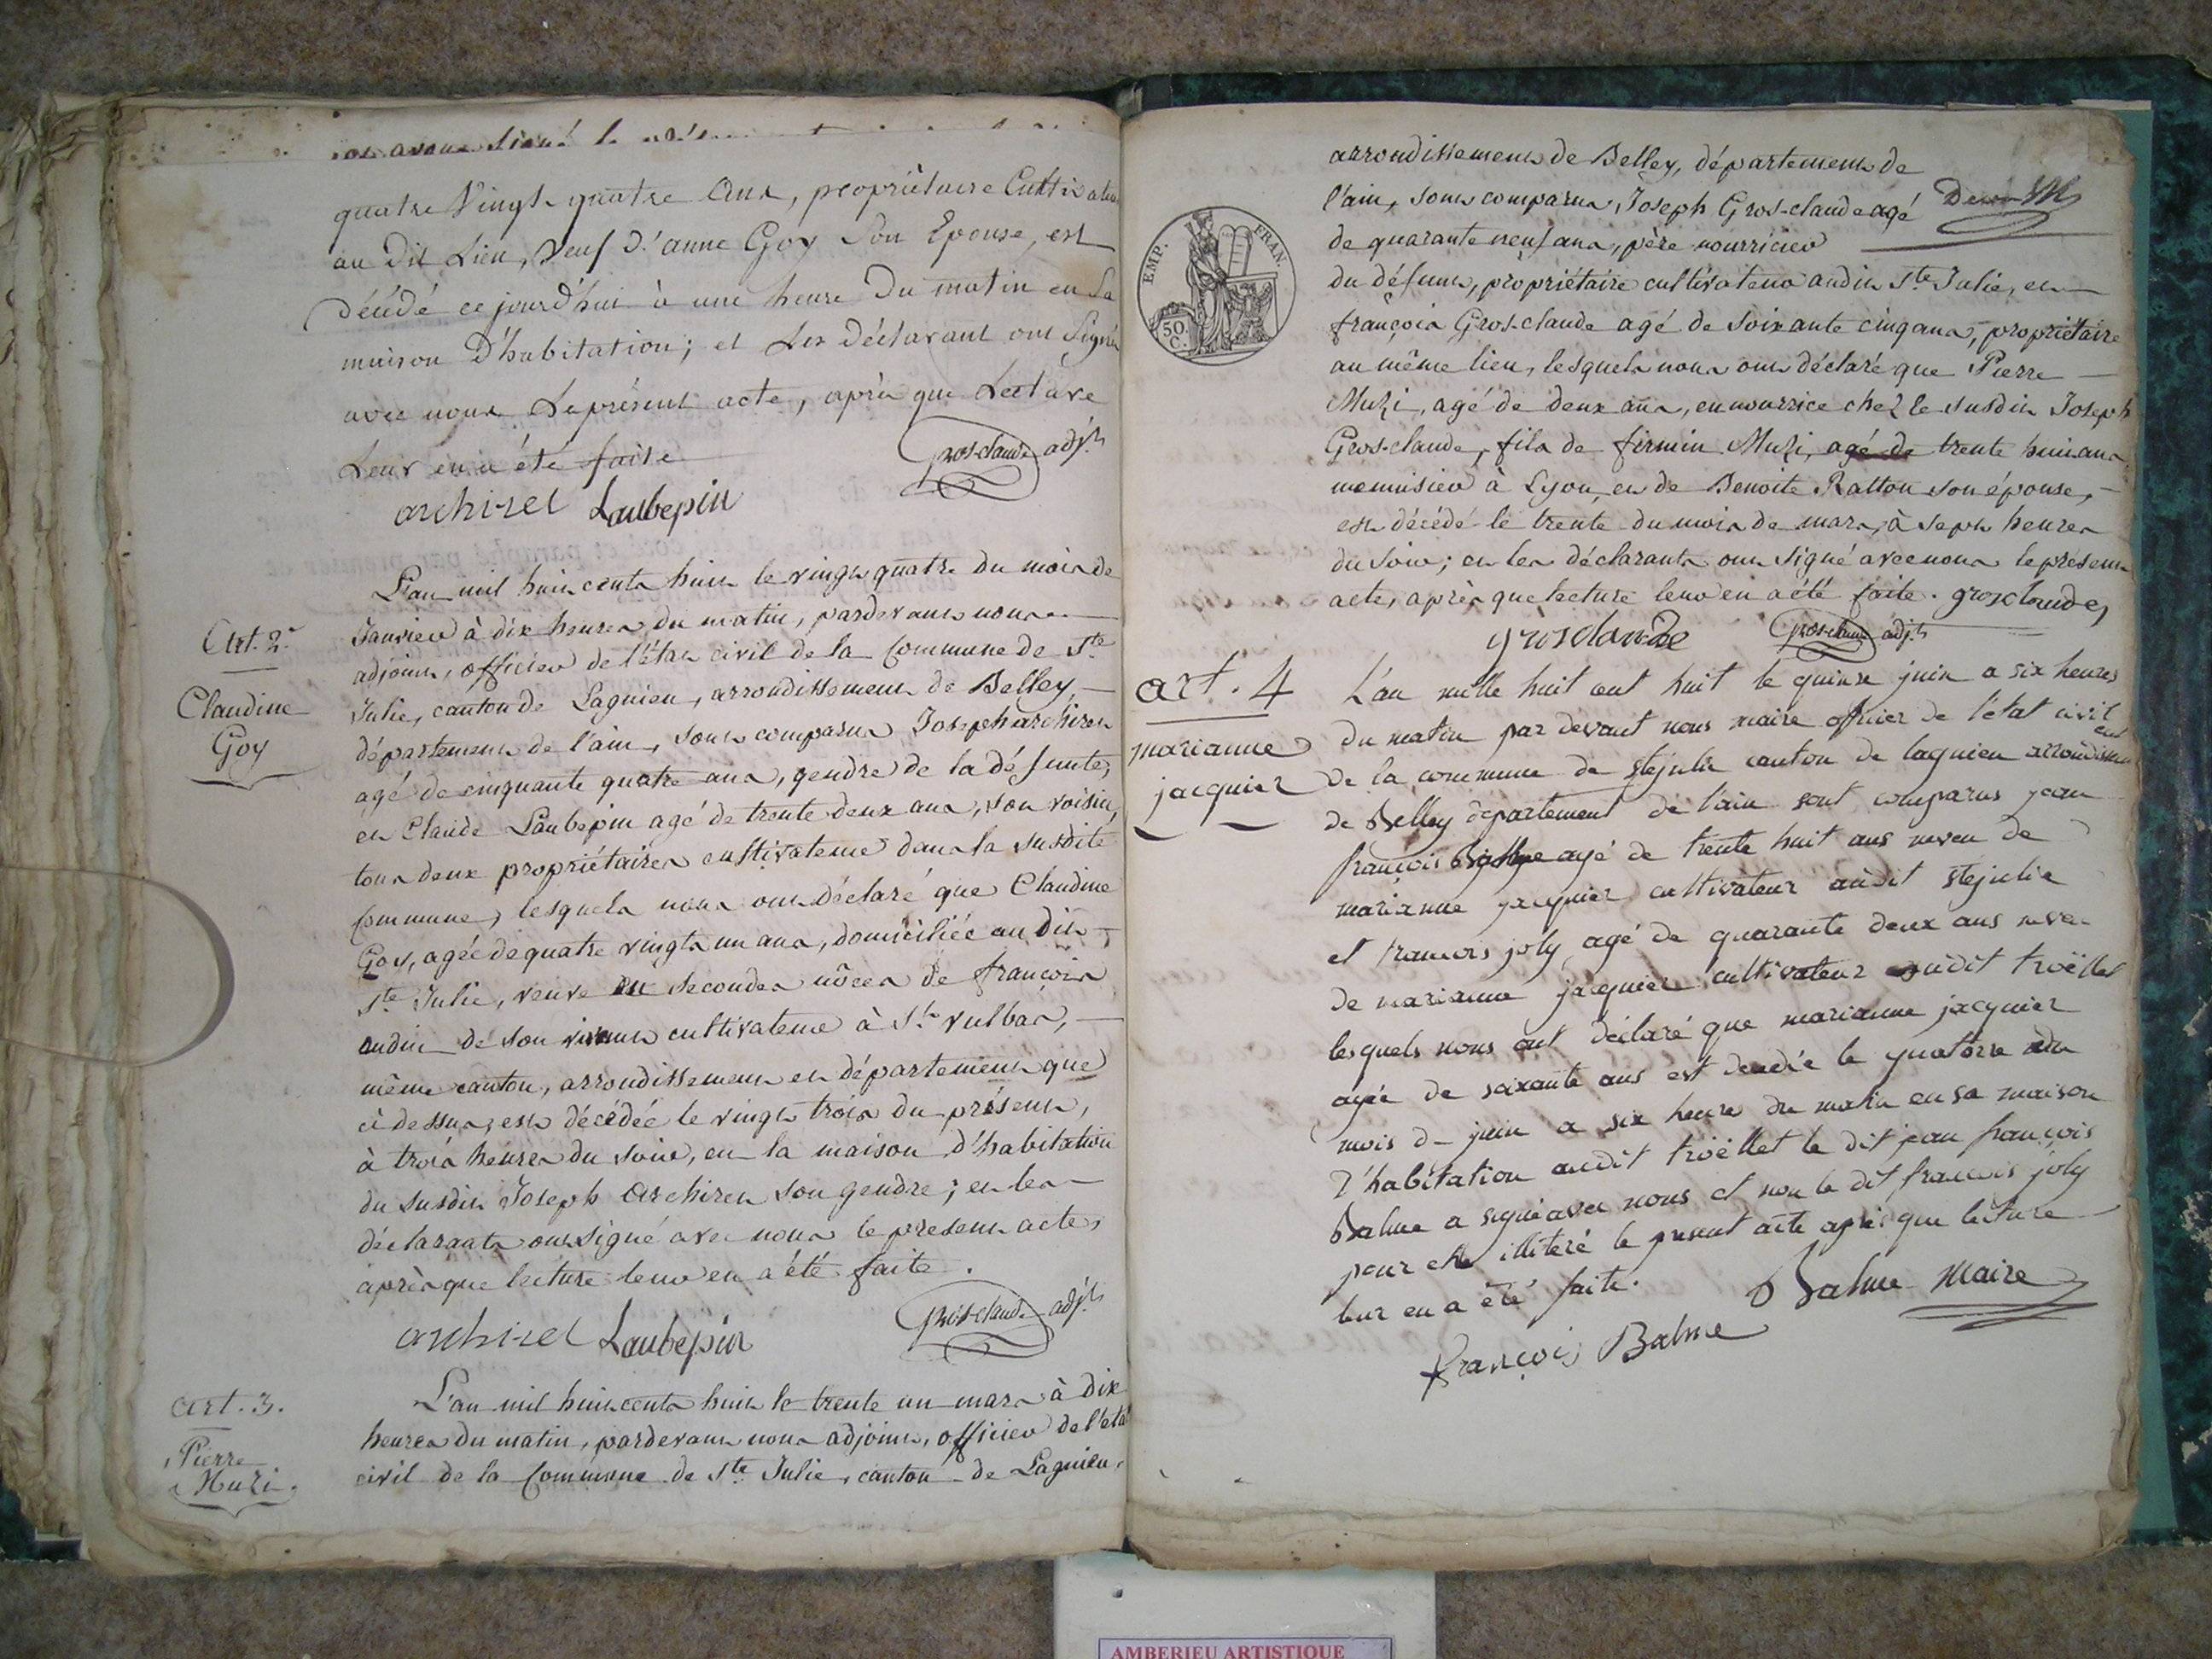 quatre Vingt quatre Ans, propriètaire Cultivateur
au Dit Lieu, Veuf d'anne Goy Son Epouse, est
décédé ce jourd'hui à une heure Du matin en Sa
maison D'habitation; et Les Déclarant ont Signé
avec nous Le présent acte, après que Lecture
Leur en a été faite
Gros-claude adj.t
archirel Laubepin
Art. 2.e
Claudine
Goy
L'an mil huit cents huit le vingt quatre du mois de
Janvier à dix heures du matin, pardevant nous
adjoint, officier de l'état civil de la Commune de Ste
Julie, canton de Lagnieu, arrondissement de Belley,
département de l'ain, sont comparus Joseph archirel
agé de cinquante quatre ans, gendre de la défunte,
et Claude Laubepin agé de trente deux ans, son voisin,
tous deux propriétaires cultivateurs dans la susdite
Commune, lesquels nous ont déclaré que Claudine
Goy, agée de quatre vingts un ans, domiciliée au dit
Ste Julie, veuve en secondes nôces de françois
audin de son vivant cultivateur à St. vulbas,
même canton, arrondissement et département que
ci dessus, est décédée le vingt trois du présent,
à trois heures du soir, en la maison d'habitation
du susdit Joseph Archirel son gendre; et les
déclarants ont signé avec nous le présent acte,
après que lecture leur en a été faite.
Gros-claude adj.t
archirel Laubepin
art. 3.
Pierre
Muzi.
L'an mil huit cents huit le trente un mars à dix
heures du matin, pardevant nous adjoint, officier de l'état
civil de la Commune de Ste Julie, canton de Lagnieu,
EMP. FRAN.
50.
C.
arrondissement de Belley, département de
l'ain, sont comparus, Joseph Gros-claude agé
de quarante neuf ans, père nourricier
du défunt, propriétaire cultivateur audit Ste Julie, et
françois Gros-claude agé de soixante cinq ans, propriétaire
au même lieu, lesquels nous ont déclaré que Pierre
Muzi, agé de deux ans, en nourrice chez le susdit Joseph
Gros-claude, fils de firmin Muzi, agé de trente huit ans
menuisier à Lyon, et de Benoite Ratton son épouse,
est décédé le trente du mois de mars, à sept heures
du soir; et les déclarants ont signé avec nous le présent
acte, après que lecture leur en a été faite. grosclaude
grosclaude Gros-claude adj.t
art. 4
marianne
jacquier
L'an mille huit cent huit le quinze juin a six heures
du matin par devant nous maire officier de l'état civil
de la commune de ste julie canton de lagnieu arrondissement
de Belley departement de l'ain sont comparus jean
françois Balme agé de trente huit ans neveu de
marianne jacquier cultivateur audit ste julie
et francois joly agé de quarante deux ans neveu
de marianne jacquier cultivateur audit troëllet
lesquels nous ont déclaré que marianne jacquier
agée de soixante ans est decedée le quatorze du
mois de juin a six heure du matin en sa maison
d'habitation audit troëllet le dit jean françois
Balme a signé avec nous et non le dit francois joly
pour etre illiteré le present acte après que lecture
leur en a été faite.
Balme Maire
François Balme
AMBERIEU ARTISTIQUE